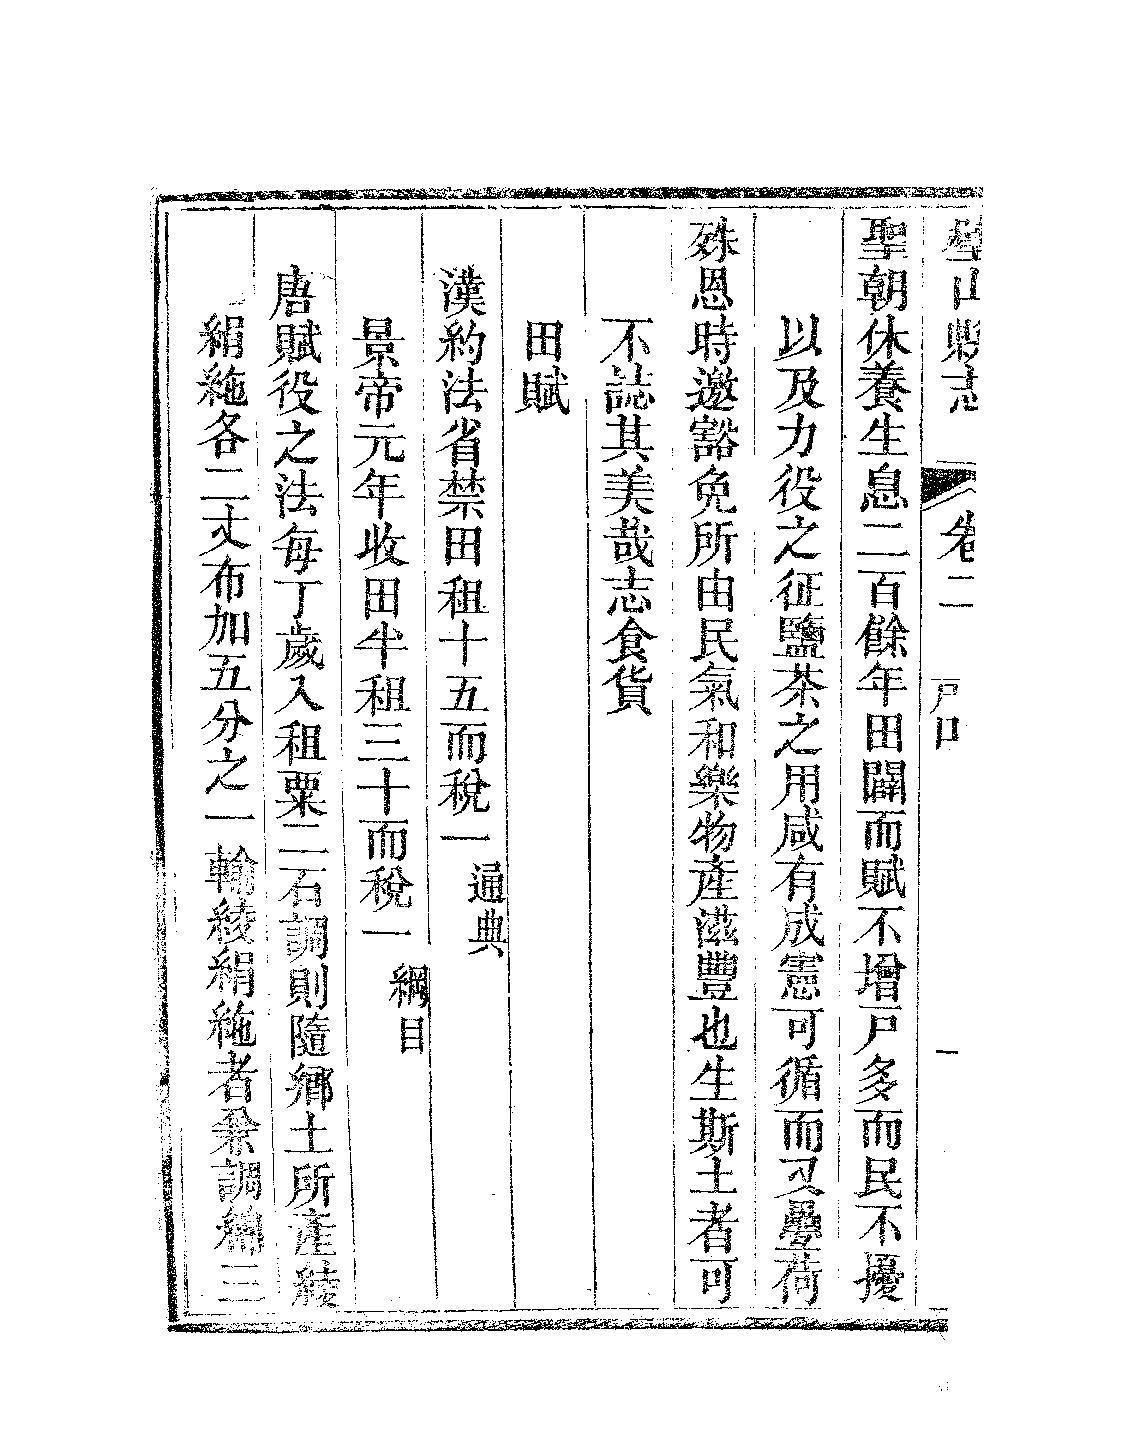 璧山縣志 卷二 戶口 一
聖朝休養生息二百餘年田闢而賦不增戸多而民不擾
以及力役之征鹽茶之用咸有成憲可循而又疊荷
殊恩時邀豁免所由民氣和樂物產滋豐也生斯土者可
不誌其美哉志食貨
田賦
漢約法省禁田租十五而稅一 通典
景帝元年收田半租三十而稅一 綱目
唐賦役之法每丁歲入租粟二石調則隨鄉土所產綾
絹絁各二丈布加五分之一輸綾絹絁者兼調綿三